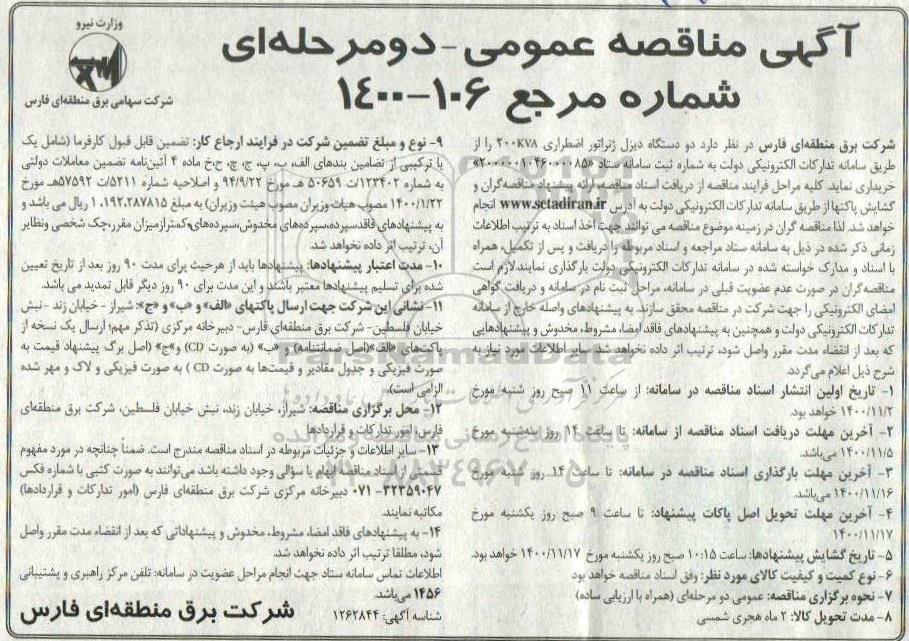 آگهی مناقصه عمومی - دومرحله‌ای
شماره مرجع ۱۰۶-۱۴۰۰
وزارت نیرو
شرکت سهامی برق منطقه‌ای فارس
شرکت برق منطقه‌ای فارس در نظر دارد دو دستگاه دیزل ژنراتور اضطراری ۲۰۰KVA را از
طریق سامانه تدارکات الکترونیکی دولت به شماره ثبت سامانه ستاد «۲۰۰۰۰۰۱۰۴۶۰۰۰۱۸۵»
خریداری نماید. کلیه مراحل فرایند مناقصه از دریافت اسناد مناقصه، ارائه پیشنهاد مناقصه‌گران و
گشایش پاکتها از طریق سامانه تدارکات الکترونیکی دولت به آدرس www.setadiran.ir انجام
خواهد شد. لذا مناقصه گران در زمینه موضوع مناقصه می توانند جهت اخذ اسناد به ترتیب اطلاعات
زمانی ذکر شده در ذیل به سامانه ستاد مراجعه و اسناد مربوطه را دریافت و پس از تکمیل، همراه
با اسناد و مدارک خواسته شده در سامانه تدارکات الکترونیکی دولت بارگذاری نمایند. لازم است
مناقصه‌گران در صورت عدم عضویت قبلی در سامانه، مراحل ثبت نام در سامانه و دریافت گواهی
امضای الکترونیکی را جهت شرکت در مناقصه محقق سازند. به پیشنهادهای واصله خارج از سامانه
تدارکات الکترونیکی دولت و همچنین به پیشنهادهای فاقد امضا، مشروط، مخدوش و پیشنهادهایی
که بعد از انقضاء مدت مقرر واصل شود، ترتیب اثر داده نخواهد شد. سایر اطلاعات مورد نیاز به
شرح ذیل اعلام می‌گردد.
۱- تاریخ اولین انتشار اسناد مناقصه در سامانه: از ساعت ۱۱ صبح روز شنبه مورخ
۱۴۰۰/۱۱/۲ خواهد بود.
۲- آخرین مهلت دریافت اسناد مناقصه از سامانه: تا ساعت ۱۴ روز سه‌شنبه مورخ
۱۴۰۰/۱۱/۵ می‌باشد.
۳- آخرین مهلت بارگذاری اسناد مناقصه در سامانه: تا ساعت ۱۴ روز شنبه مورخ
۱۴۰۰/۱۱/۱۶ می‌باشد.
۴- آخرین مهلت تحویل اصل پاکات پیشنهاد: تا ساعت ۹ صبح روز یکشنبه مورخ
۱۴۰۰/۱۱/۱۷
۵- تاریخ گشایش پیشنهادها: ساعت ۱۰:۱۵ صبح روز یکشنبه مورخ ۱۴۰۰/۱۱/۱۷ خواهد بود.
۶- نوع کمیت و کیفیت کالای مورد نظر: وفق اسناد مناقصه خواهد بود
۷- نحوه برگزاری مناقصه: عمومی دو مرحله‌ای (همراه با ارزیابی ساده)
۸- مدت تحویل کالا: ۲ ماه هجری شمسی
۹- نوع و مبلغ تضمین شرکت در فرایند ارجاع کار: تضمین قابل قبول کارفرما (شامل یک
یا ترکیبی از تضامین بندهای الف، ب، پ، ج، چ، ح، خ ماده ۴ آئین‌نامه تضمین معاملات دولتی
به شماره ۱۲۳۴۰۲/ت ۵۰۶۵۹ هـ مورخ ۹۴/۹/۲۲ و اصلاحیه شماره ۵۲۱۱/ت ۵۷۵۹۲هـ مورخ
۱۴۰۰/۱/۲۲ مصوب هیات وزیران مصوب هیئت وزیران) به مبلغ ۱،۱۹۲،۲۸۷،۸۱۵ ریال می باشد و
به پیشنهادهای فاقد سپرده، سپرده‌های مخدوش، سپرده‌های کمتر از میزان مقرر، چک شخصی و نظایر
آن، ترتیب اثر داده نخواهد شد.
۱۰- مدت اعتبار پیشنهادها: پیشنهادها باید از هر حیث برای مدت ۹۰ روز بعد از تاریخ تعیین
شده برای تسلیم پیشنهادها معتبر باشند و این مدت برای ۹۰ روز دیگر قابل تمدید می باشد.
۱۱- نشانی این شرکت جهت ارسال پاکتهای «الف» و «ب» و «ج»: شیراز - خیابان زند - نبش
خیابان فلسطین - شرکت برق منطقه‌ای فارس - دبیرخانه مرکزی (تذکر مهم: ارسال یک نسخه از
پاکت‌های «الف» (اصل ضمانتنامه) و «ب» (به صورت CD) و «ج» (اصل برگ پیشنهاد قیمت به
صورت فیزیکی و جدول مقادیر و قیمت‌ها به صورت CD ) به صورت فیزیکی و لاک و مهر شده
الزامی است).
۱۲- محل برگزاری مناقصه: شیراز، خیابان زند، نبش خیابان فلسطین، شرکت برق منطقه‌ای
فارس، امور تدارکات و قراردادها
۱۳- سایر اطلاعات و جزئیات مربوطه در اسناد مناقصه مندرج است. ضمناً چنانچه در مورد مفهوم
قسمتی از اسناد مناقصه ابهام یا سؤالی وجود داشته باشد می‌توانند به صورت کتبی با شماره فکس
۳۲۳۵۹۰۴۷-۰۷۱ دبیرخانه مرکزی شرکت برق منطقه‌ای فارس (امور تدارکات و قراردادها)
مکاتبه نمایند.
۱۴- به پیشنهادهای فاقد امضاء، مشروط، مخدوش و پیشنهاداتی که بعد از انقضاء مدت مقرر واصل
شود، مطلقا ترتیب اثر داده نخواهد شد.
اطلاعات تماس سامانه ستاد جهت انجام مراحل عضویت در سامانه: تلفن مرکز راهبری و پشتیبانی
۱۴۵۶ می‌باشد.
شناسه آگهی: ۱۲۶۲۸۴۴
شرکت برق منطقه‌ای فارس
ParsNamadData